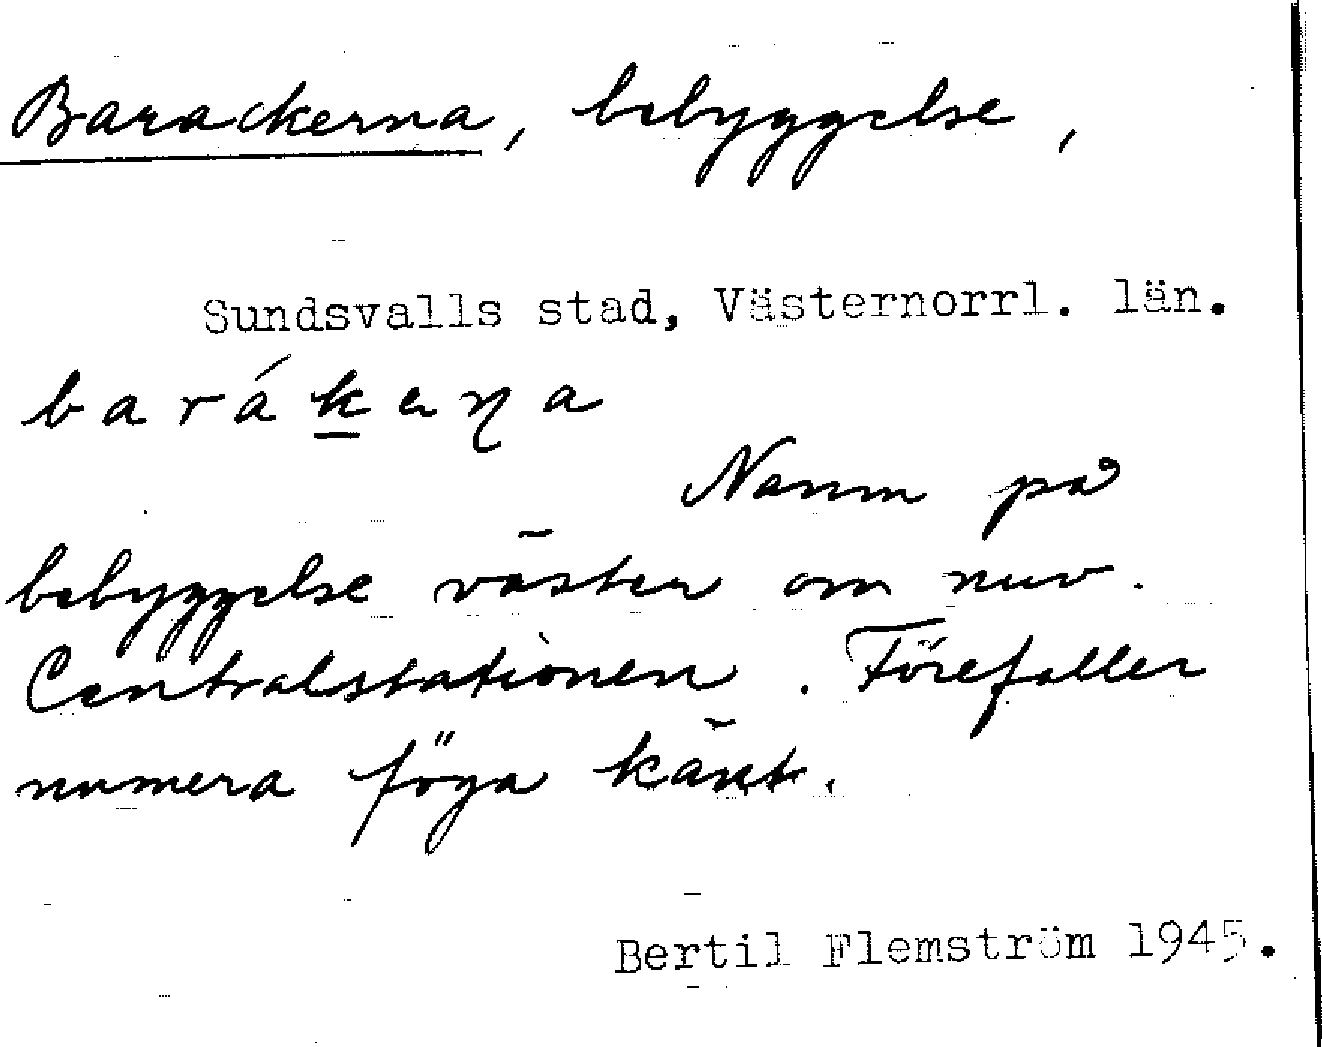 Barackerna, bebyggelse,
Sundsvalls stad, Västernorrl. län.
barákeṇa
Namn på
bebyggelse väster om nuv.
Centralstationen. Förefaller
numera föga känt.
Bertil Flemström 1945.